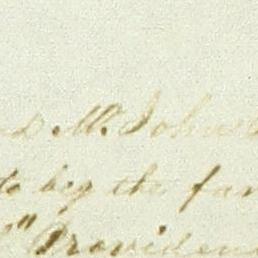 M. Johns
to beg the fav
" Providen